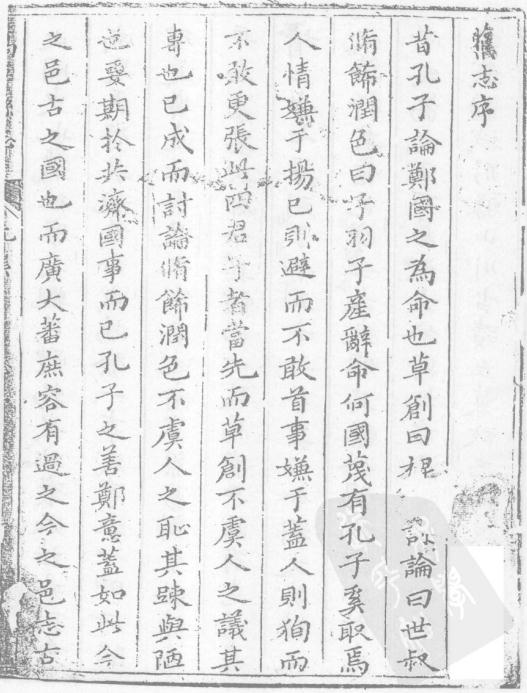 舊志序
昔孔子論鄭國之為命也草創曰裨 討論曰世叔
脩飾潤色曰子羽子產辭命何國蔑有孔子奚取焉
人情嫌于揚己則避而不敢首事嫌于蓋人則狥而
不敢更張此四君子者當先而草創不虞人之議其
專也已成而討論脩飾潤色不虞人之恥其踈與陋
也要期於共濟國事而已孔子之善鄭意蓋如此今
之邑古之國也而廣大蕃庶容有過之今之邑志古